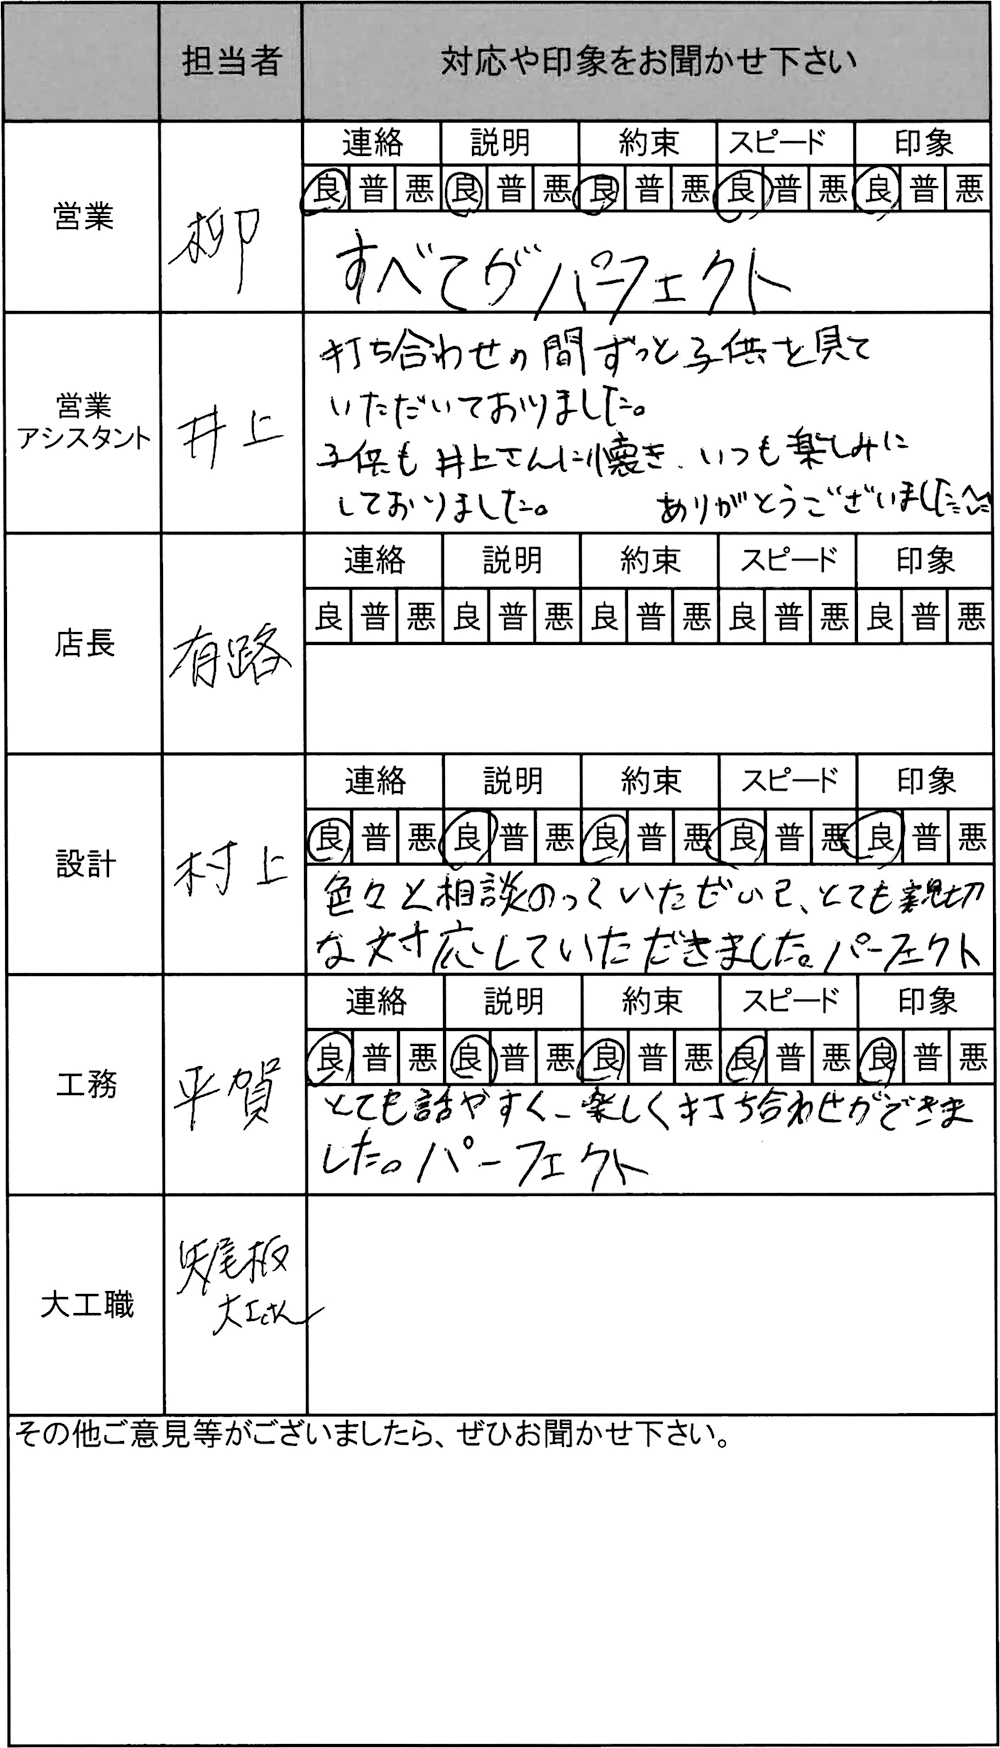 担当者 対応や印象をお聞かせ下さい
連絡 説明 約束 スピード 印象
良 普 悪 良 普 悪 良 普 悪 良 普 悪 良 普 悪
営業
柳
すべてがパーフェクト
営業
アシスタント
井上
打ち合わせの間ずっと子供を見て
いただいておりました。
子供も井上さんに懐き、いつも楽しみに
しておりました。 ありがとうございました
連絡 説明 約束 スピード 印象
良 普 悪 良 普 悪 良 普 悪 良 普 悪 良 普 悪
店長
有路
連絡 説明 約束 スピード 印象
良 普 悪 良 普 悪 良 普 悪 良 普 悪 良 普 悪
設計
村上
色々と相談のっていただいて、とても親切
な対応していただきました。パーフェクト
連絡 説明 約束 スピード 印象
良 普 悪 良 普 悪 良 普 悪 良 普 悪 良 普 悪
工務
平賀
とても話やすく、楽しく打ち合わせができま
した。パーフェクト
大工職
矢尾板
大工さん
その他ご意見等がございましたら、ぜひお聞かせ下さい。